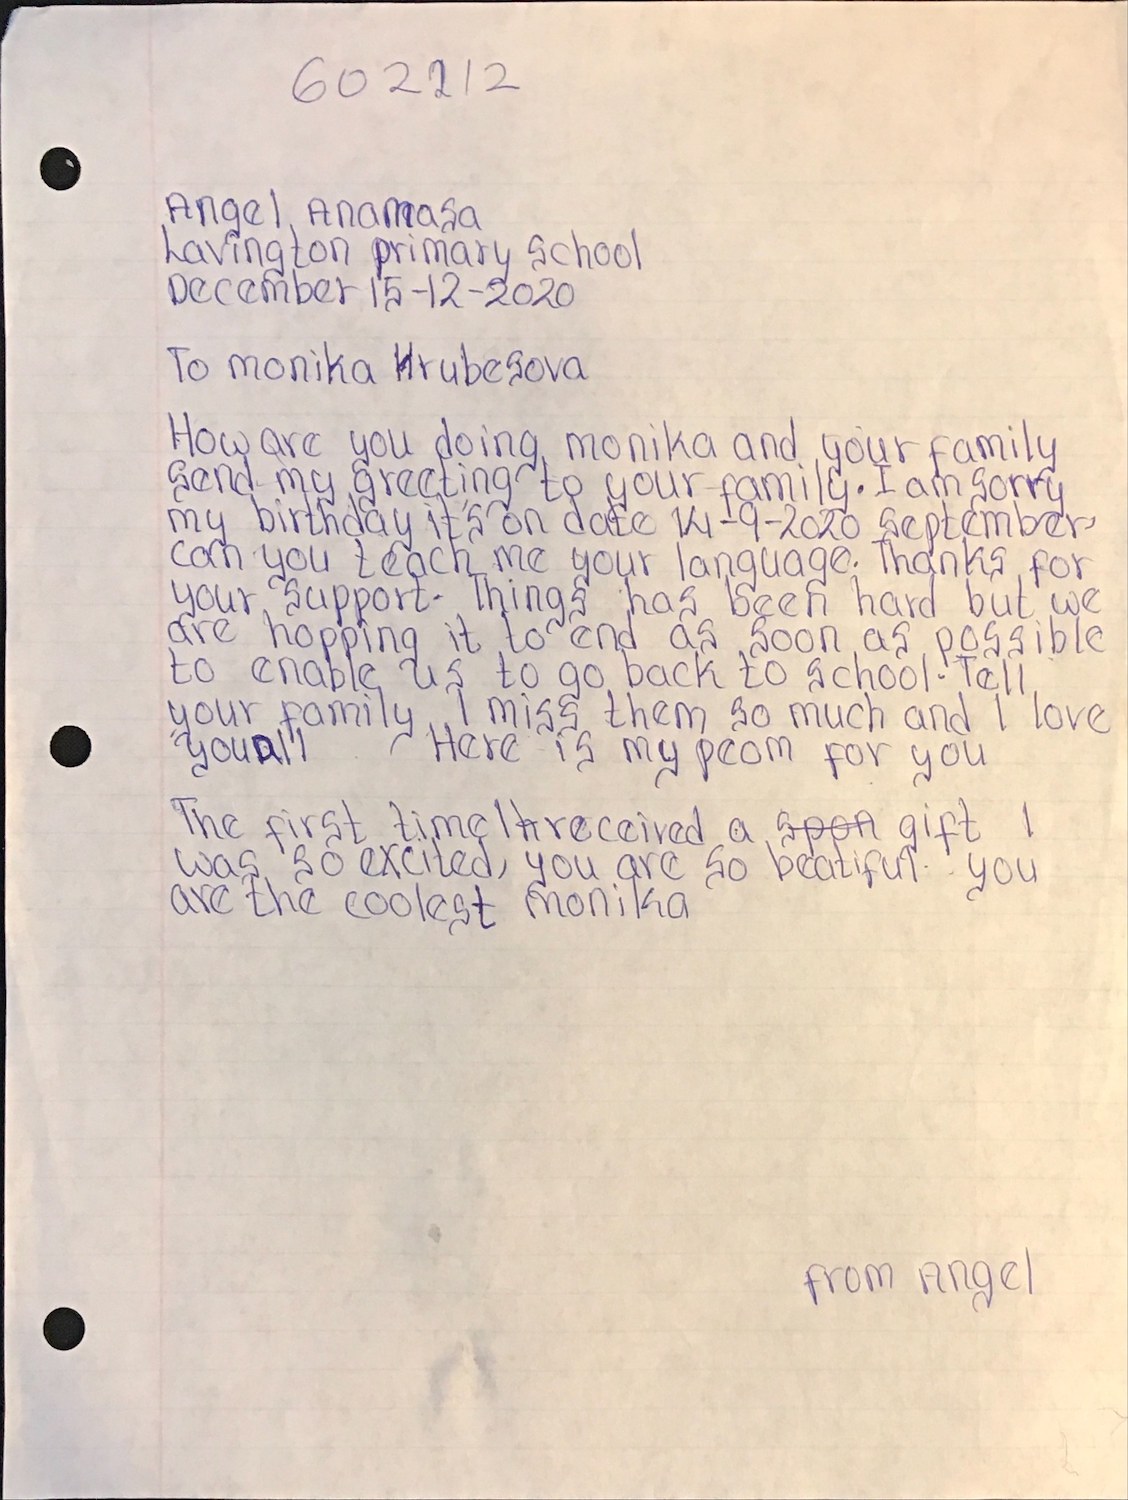 602212
Angel Anamasa
Lavington primary school
December 15-12-2020
To monika Hrubesova
How are you doing monika and your family
send my greeting to your family. I am sorry
my birthday it's on date 14-9-2020 september
can you teach me your language. Thanks for
your support. Things has been hard but we
are hopping it to end as soon as possible
to enable us to go back to school. Tell
your family I miss them so much and I love
you all Here is my peom for you
The first time I received a spon gift I
was so excited, you are so beatiful. you
are the coolest monika
from Angel